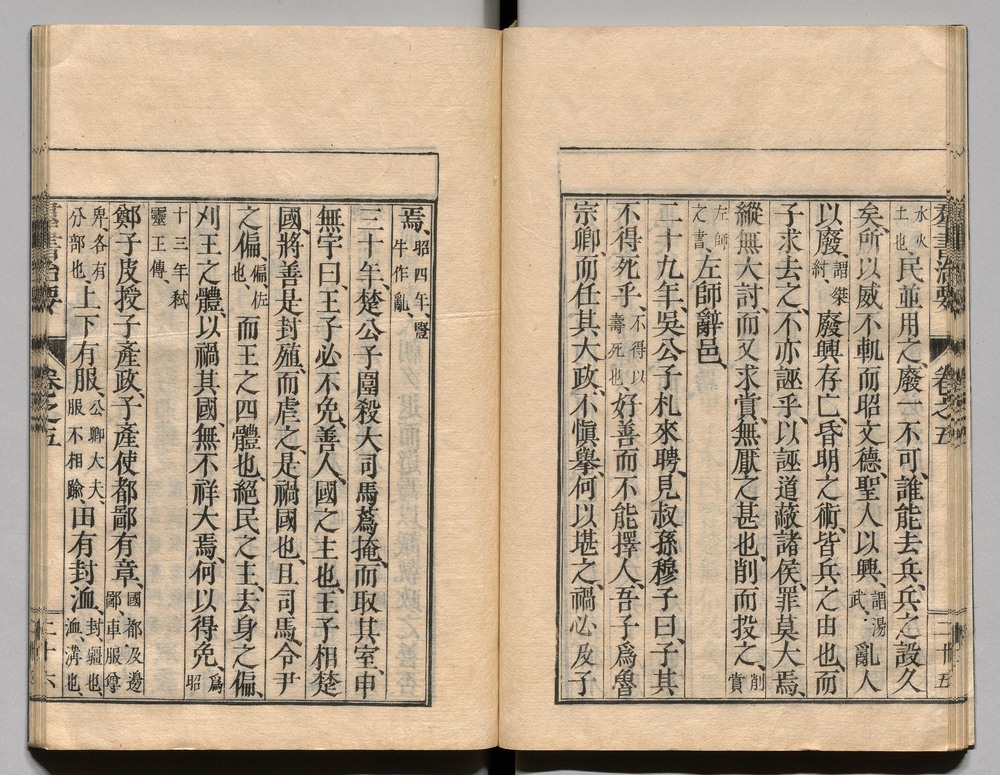 水火土也、民並用之、廢一不可、誰能去兵、兵之設久
矣、所以威不軌而昭文德、聖人以興、謂湯武、亂人
以廢、謂桀紂、廢興存亡、昏明之術、皆兵之由也、而
子求去之、不亦誣乎、以誣道蔽諸侯、罪莫大焉、
縱無大討、而又求賞、無厭之甚也、削而投之、削賞
左師之書、左師辭邑、
二十九年、吳公子札來聘、見叔孫穆子曰、子其
不得死乎、不得以壽死也、好善而不能擇人、吾子爲魯
宗卿、而任其大政、不愼擧、何以堪之、禍必及子
羣書治要 卷之五 二十五
焉、昭四年、豎牛作亂、
三十年、楚公子圍殺大司馬蒍掩、而取其室、申
無宇曰、王子必不免、善人、國之主也、王子相楚
國、將善是封殖、而虐之、是禍國也、且司馬、令尹
之偏、偏佐也、而王之四體也、絕民之主、去身之偏、
刈王之體、以禍其國、無不祥大焉、何以得免、爲昭
十三年弒靈王傳、
鄭子皮授子產政、子產使都鄙有章、國都及邊鄙、車服尊
卑、各有分部也、上下有服、公卿大夫、服不相踰、田有封洫、封、疆也、洫、溝也、
羣書治要 卷之五 二十六